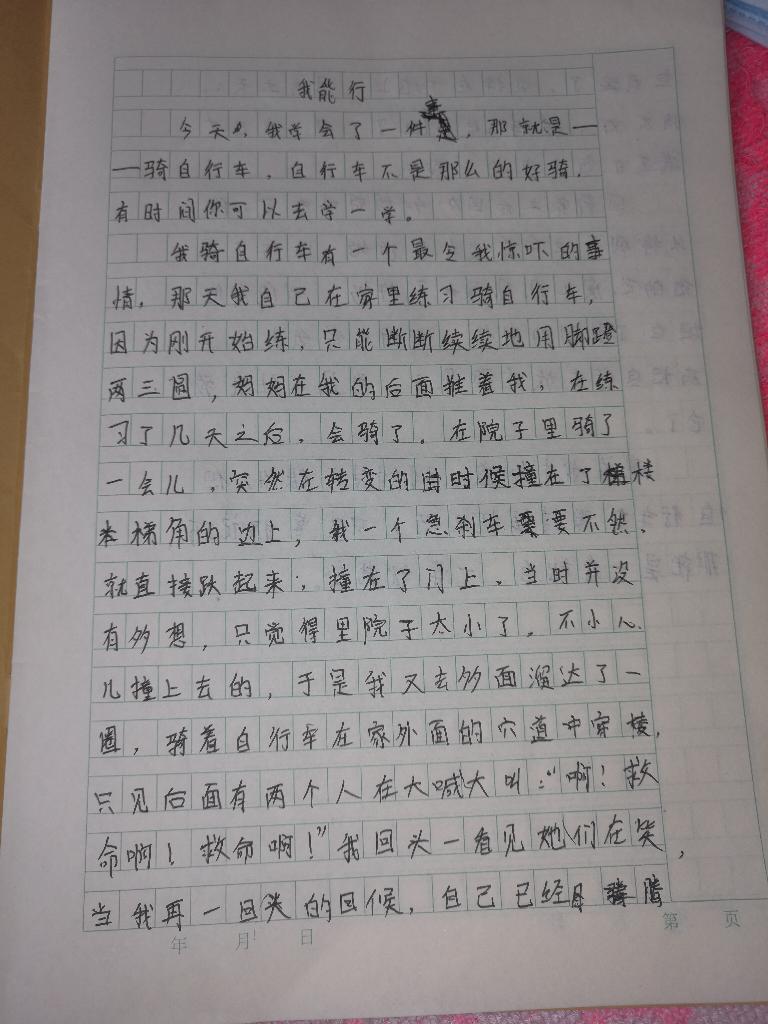 我能行
今天,我学会了一件事,那就是—
—骑自行车,自行车不是那么的好骑.
有时间你可以去学一学。
我骑自行车有一个最令我惊吓的事
情.那天我自己在家里练习骑自行车,
因为刚开始练,只能断断续续地用脚蹬
两三圈,妈妈在我的后面推着我,在练
习了几天之后,会骑了.在院子里骑了
一会儿,突然在转变的时候撞在了楼
梯角的边上,我一个急刹车要不然,
就直接跌起来,撞在了门上.当时并没
有多想,只觉得里院子太小了.不小心
儿撞上去的,于是我又去多面溜达了一
圈,骑着自行车在家外面的穴道中穿梭,
只见后面有两个人在大喊大叫:“啊!救
命啊!救命啊!”我回头一看见她们在笑,
当我再一回头的回候,自己已经腾
年 月 日
第 页